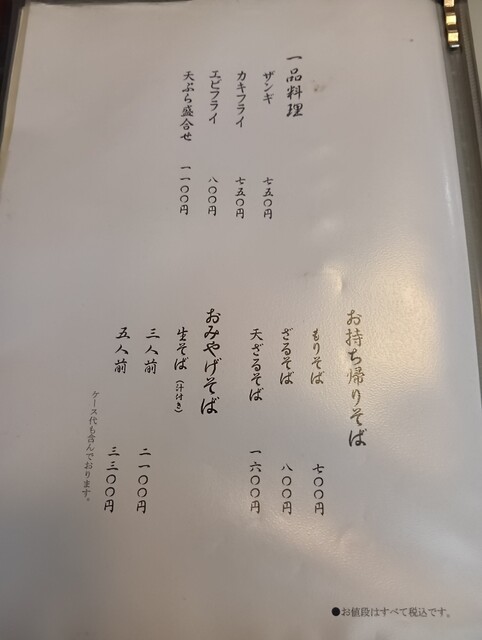 一品料理
ザンギ 七五〇円
カキフライ 七五〇円
エビフライ 八〇〇円
天ぷら盛合せ 一一〇〇円
お持ち帰りそば
もりそば 七〇〇円
ざるそば 八〇〇円
天ざるそば 一六〇〇円
おみやげそば
生そば（汁付き）
三人前 二一〇〇円
五人前 三三〇〇円
ケース代も含んでおります。
●お値段はすべて税込です。